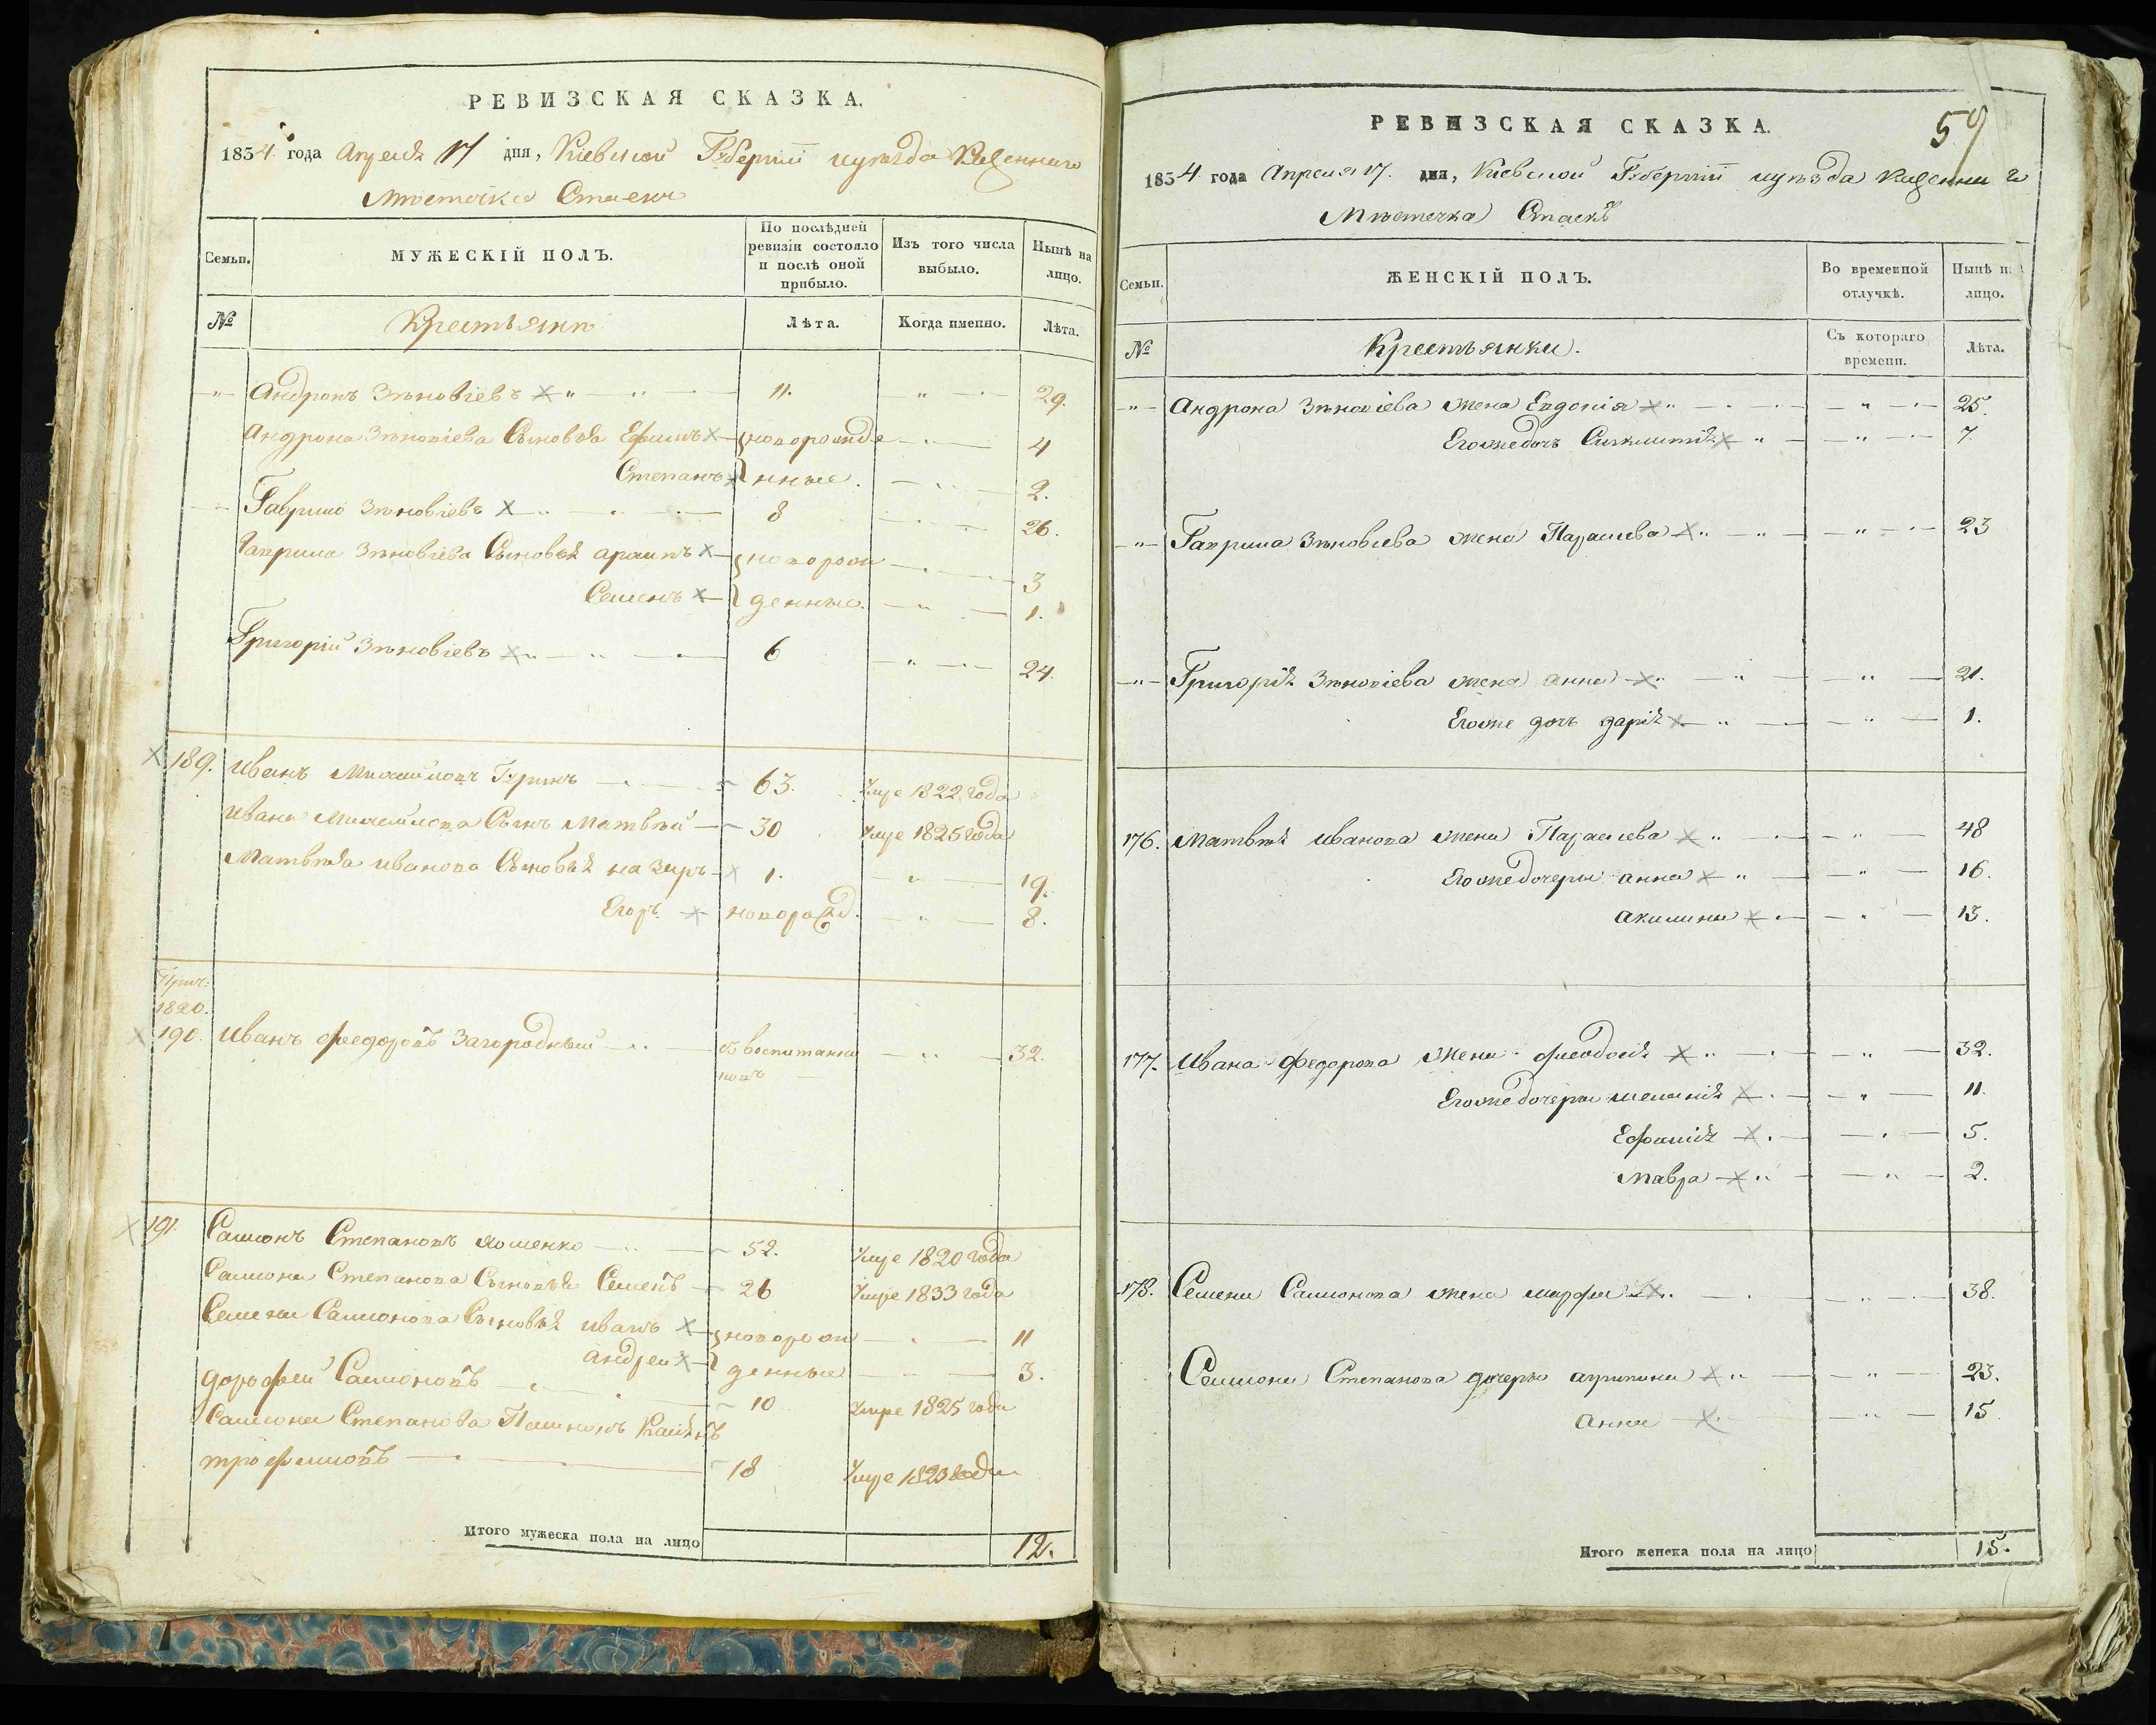 РЕВИЗСКАЯ СКАЗКА.
1834 года Апреля 17 дня, Кіевской Губерніи и уѣзда Казеннаго
Мѣстечка Стаекъ
Семьи.
МУЖЕСКІЙ ПОЛЪ.
По послѣдней ревизіи состояло и послѣ оной прибыло.
Изъ того числа выбыло.
Нынѣ на лицо.
№
Крестьяне
Лѣта.
Когда именно.
Лѣта.
Андронъ Зѣновіевъ 11. 29.
Андрона Зѣновіева Сыновья Ефимъ новорожде 4
Степанъ нные. 2.
Гаврило Зѣновіевъ 8 26.
Гаврила Зѣновіева Сыновья новорож 3
Семенъ денные. 1.
Григорій Зѣновіевъ 6 24.
189. Иванъ Михайловъ Гуринъ 63. Умре 1822 года
Ивана Михайлова Сынъ Матвѣй 30 Умре 1825 года
Матвѣя Иванова Сыновья Назаръ 1. 19.
Егоръ новорожд. 8.
Прич:
1820.
190. Иванъ Федоровъ Загородный изъ воспитанни 32.
ковъ
191. Самсонъ Степановъ 52. Умре 1820 года
Самсона Степанова Сыновья Семенъ 26 Умре 1833 года
Семена Самсонова Сыновья Иванъ новорож 11
Андрей денные 3.
Дорофей Самсоновъ 10 Умре 1825 года
Самсона Степанова
Трофимовъ 18 Умре 1823 года
Итого мужеска пола на лицо 12.
59
РЕВИЗСКАЯ СКАЗКА.
1834 года Апреля 17. дня, Кіевской Губерніи и уѣзда Казенна го
Мѣстечка Стаекъ
Семьи.
ЖЕНСКІЙ ПОЛЪ.
Во временной отлучкѣ.
Нынѣ на лицо.
№
Крестьянки.
Съ котораго времени.
Лѣта.
Андрона Зѣновіева жена Евдокія 25.
Егоже дочь 7.
Гаврила Зѣновіева жена Парасева 23
Григорія Зѣновіева жена Анна 21.
Егоже дочь Дарія 1.
176. Матвѣя Иванова жена Парасева 48
Егоже дочери Анна 16.
Акилина 13.
177. Ивана Федорова жена Феодосія 32.
Егоже дочери Меланія 11.
Ефимія 5.
Мавра 2.
178. Семена Самсонова жена Марфа 38.
Самсона Степанова дочери Агрипина 23.
Анна 15
Итого женска пола на лицо 15.